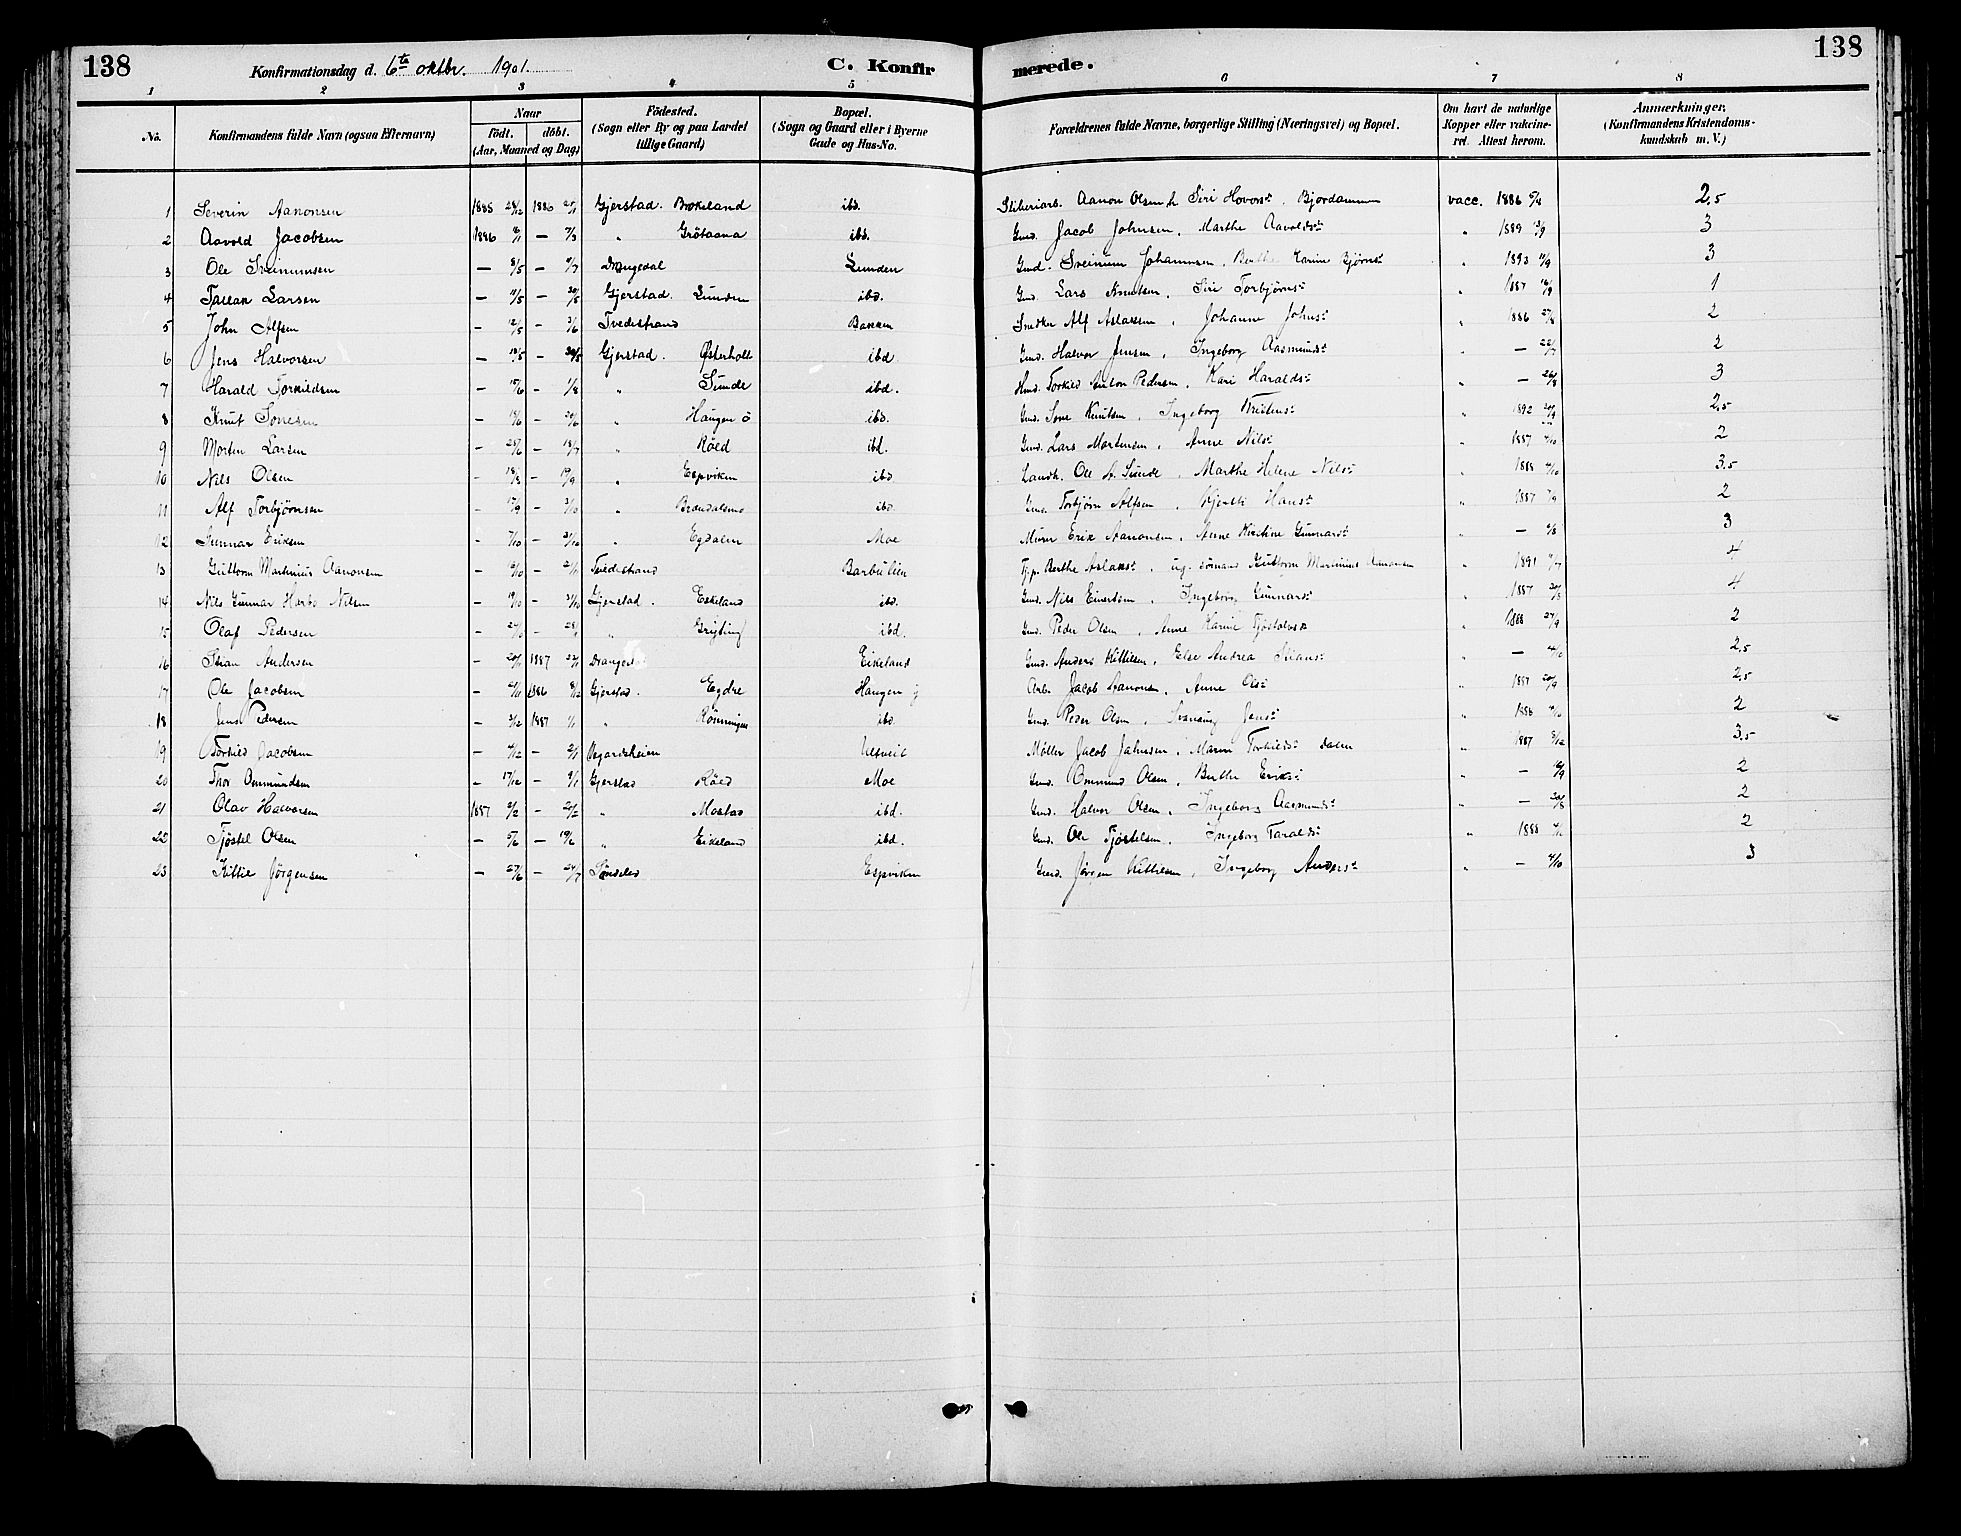 138
Konfirmationsdag d. 6te oktbr. 1901.
C. Konfirmerede.
138
1 2 3 4 5 6 7 8
No.
Konfirmandens fulde Navn (ogsaa Efternavn)
Naar
født. døbt.
(Aar, Maaned og Dag)
Fødested.
(Sogn eller By og paa Landet tillige Gaard)
Bopæl.
(Sogn og Gaard eller i Byerne Gade og Hus-No.
Forældrenes fulde Navne, borgerlige Stilling (Næringsvei) og Bopæl.
Om havt de naturlige Kopper eller vakcineret. Attest herom.
Anmærkninger.
(Konfirmandens Kristendomskundskab m. V.)
1 Severin Aanonsen 1885 28/12 1886 Gjerstad. Brokeland ibd. Aanon Olsen Siri Hovors Bjordammen vacc. 1886 2,5
2 Aavold Jacobsen 1886 — 7/3 " Grötaana ibd. Gmd. Jacob Johnsen, Marthe Aavolds " 1889 13/9 3
3 Ole Sveinumsen — 8/5 — Drangedal Lunden Gmd. Sveinum Johannsen, Berthe Karine Bjørns " 1893 3
4 Larsen — — 30/5 Gjerstad. Lunden ibd. Gmd. Lars Knutsen, Siri Torbjørns " 1887 1
5 John Alfsen — 12/5 — 3/6 Tvedestrand Bakken Snedker Alf Aslaksen, Johanne Johns " 1886 2
6 Jens Halvorsen — — 30/5 Gjerstad. Østerholt ibd Gmd. Halvor Jensen, Ingeborg Aasmunds " — 22/7 2
7 Harald Torkildsen — 15/6 — 1/8 " Sunde ibd. Torkild Anton Pedersen, Kari Haralds " — 26/8 3
8 Knut Sonesen — — " Haugen ö ibd. Gmd. Sone Knutsen, Ingeborg " 1892 2,5
9 Morten Larsen — 25/6 — 18/7 " Röed ibd. Gmd. Lars Mortensen, Anne Nils " 1887 4/10 2
10 Nils Olsen - 18/8 — 19/9 " Espviken ibd Landh. Ole A. Sunde, Marthe Helene Nils " 1888 4/10 3,5
11 Alf Torbjørnsen - 17/9 — 3/10 " ibd. Gmd. Torbjørn Alfsen, Hans " 1887 2
12 Gunnar Eriksen - 7/10 — 31/10 " Egdalen Moe Murer Erik Aanonsen, Anne Kirstine Gunnars " — 3
13 Guttorm Martinius Aanonsen — — Tvedestrand Barbulien Berthe Aslaks, ug. sömand Guttorm Martinius Aanonsen " 1891 4
14 Nils Gunnar Nilsen — 19/10 — 31/10 Gjerstad. Eskeland ibd. Gmd. Nils Einertsen, Ingeborg Gunnars " 1887 4
15 Olaf Pedersen — — " Gryting ibd. Gmd. Peder Olsen, Anne Karine " 1888 27/9 2
16 Stian Andersen — 1887 Drangedal Eikeland Gmd. Anders Kittilsen, Else Andrea Stians " — 4/10 2,5
17 Ole Jacobsen — 1886 8/12 Gjerstad. Egdre Haugen y Arb. Jacob Aanonsen, Anne Ols " 1887 20/9 2,5
18 Jens Pedersen — 3/12 1887 " Rönningen ibd Gmd. Peder Olsen, Jens " 1886 2
19 Torkild Jacobsen — 4/12 — 2/1 Vegardsheien Ulsveit Møller Jacob Jahnsen, Maren Torkilds Dalen " 1887 8/12 3,5
20 Thor Ommundsen — 17/12 — 9/1 Gjerstad Röed Moe Gmd. Ommund Olsen, Berthe Eriks " — 2
21 Olav Halvorsen 1887 2/2 — 20/2 " Mostad ibd. Gmd. Halvor Olsen, Ingeborg Aasmunds " — 2
22 Tjöstel Olsen — 5/6 — 19/6 " Eikeland ibd. Gmd. Ole Tjöstelsen, Ingeborg Taralds " 1888 2
23 Kittil Jörgensen — 27/6 — 24/7 Söndeled Espviken Gmd. Jörgen Kittilsen, Ingeborg Anders " — 4/10 3